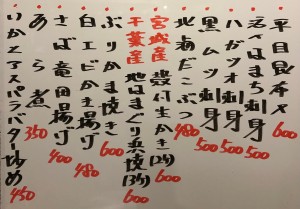 平目昆布〆 600
活〆はまち刺身 500
ハガツオ刺身 500
黒ムツ刺身 500
北海だこぶつ 480
宮城産 殻付生かき(2ヶ) 600
千葉産 地はまぐり浜焼(3ヶ) 600
ぶりかま焼き 600
白エビかき揚げ 480
さば竜田揚げ 400
あら煮 350
いかとアスパラバター炒め 450